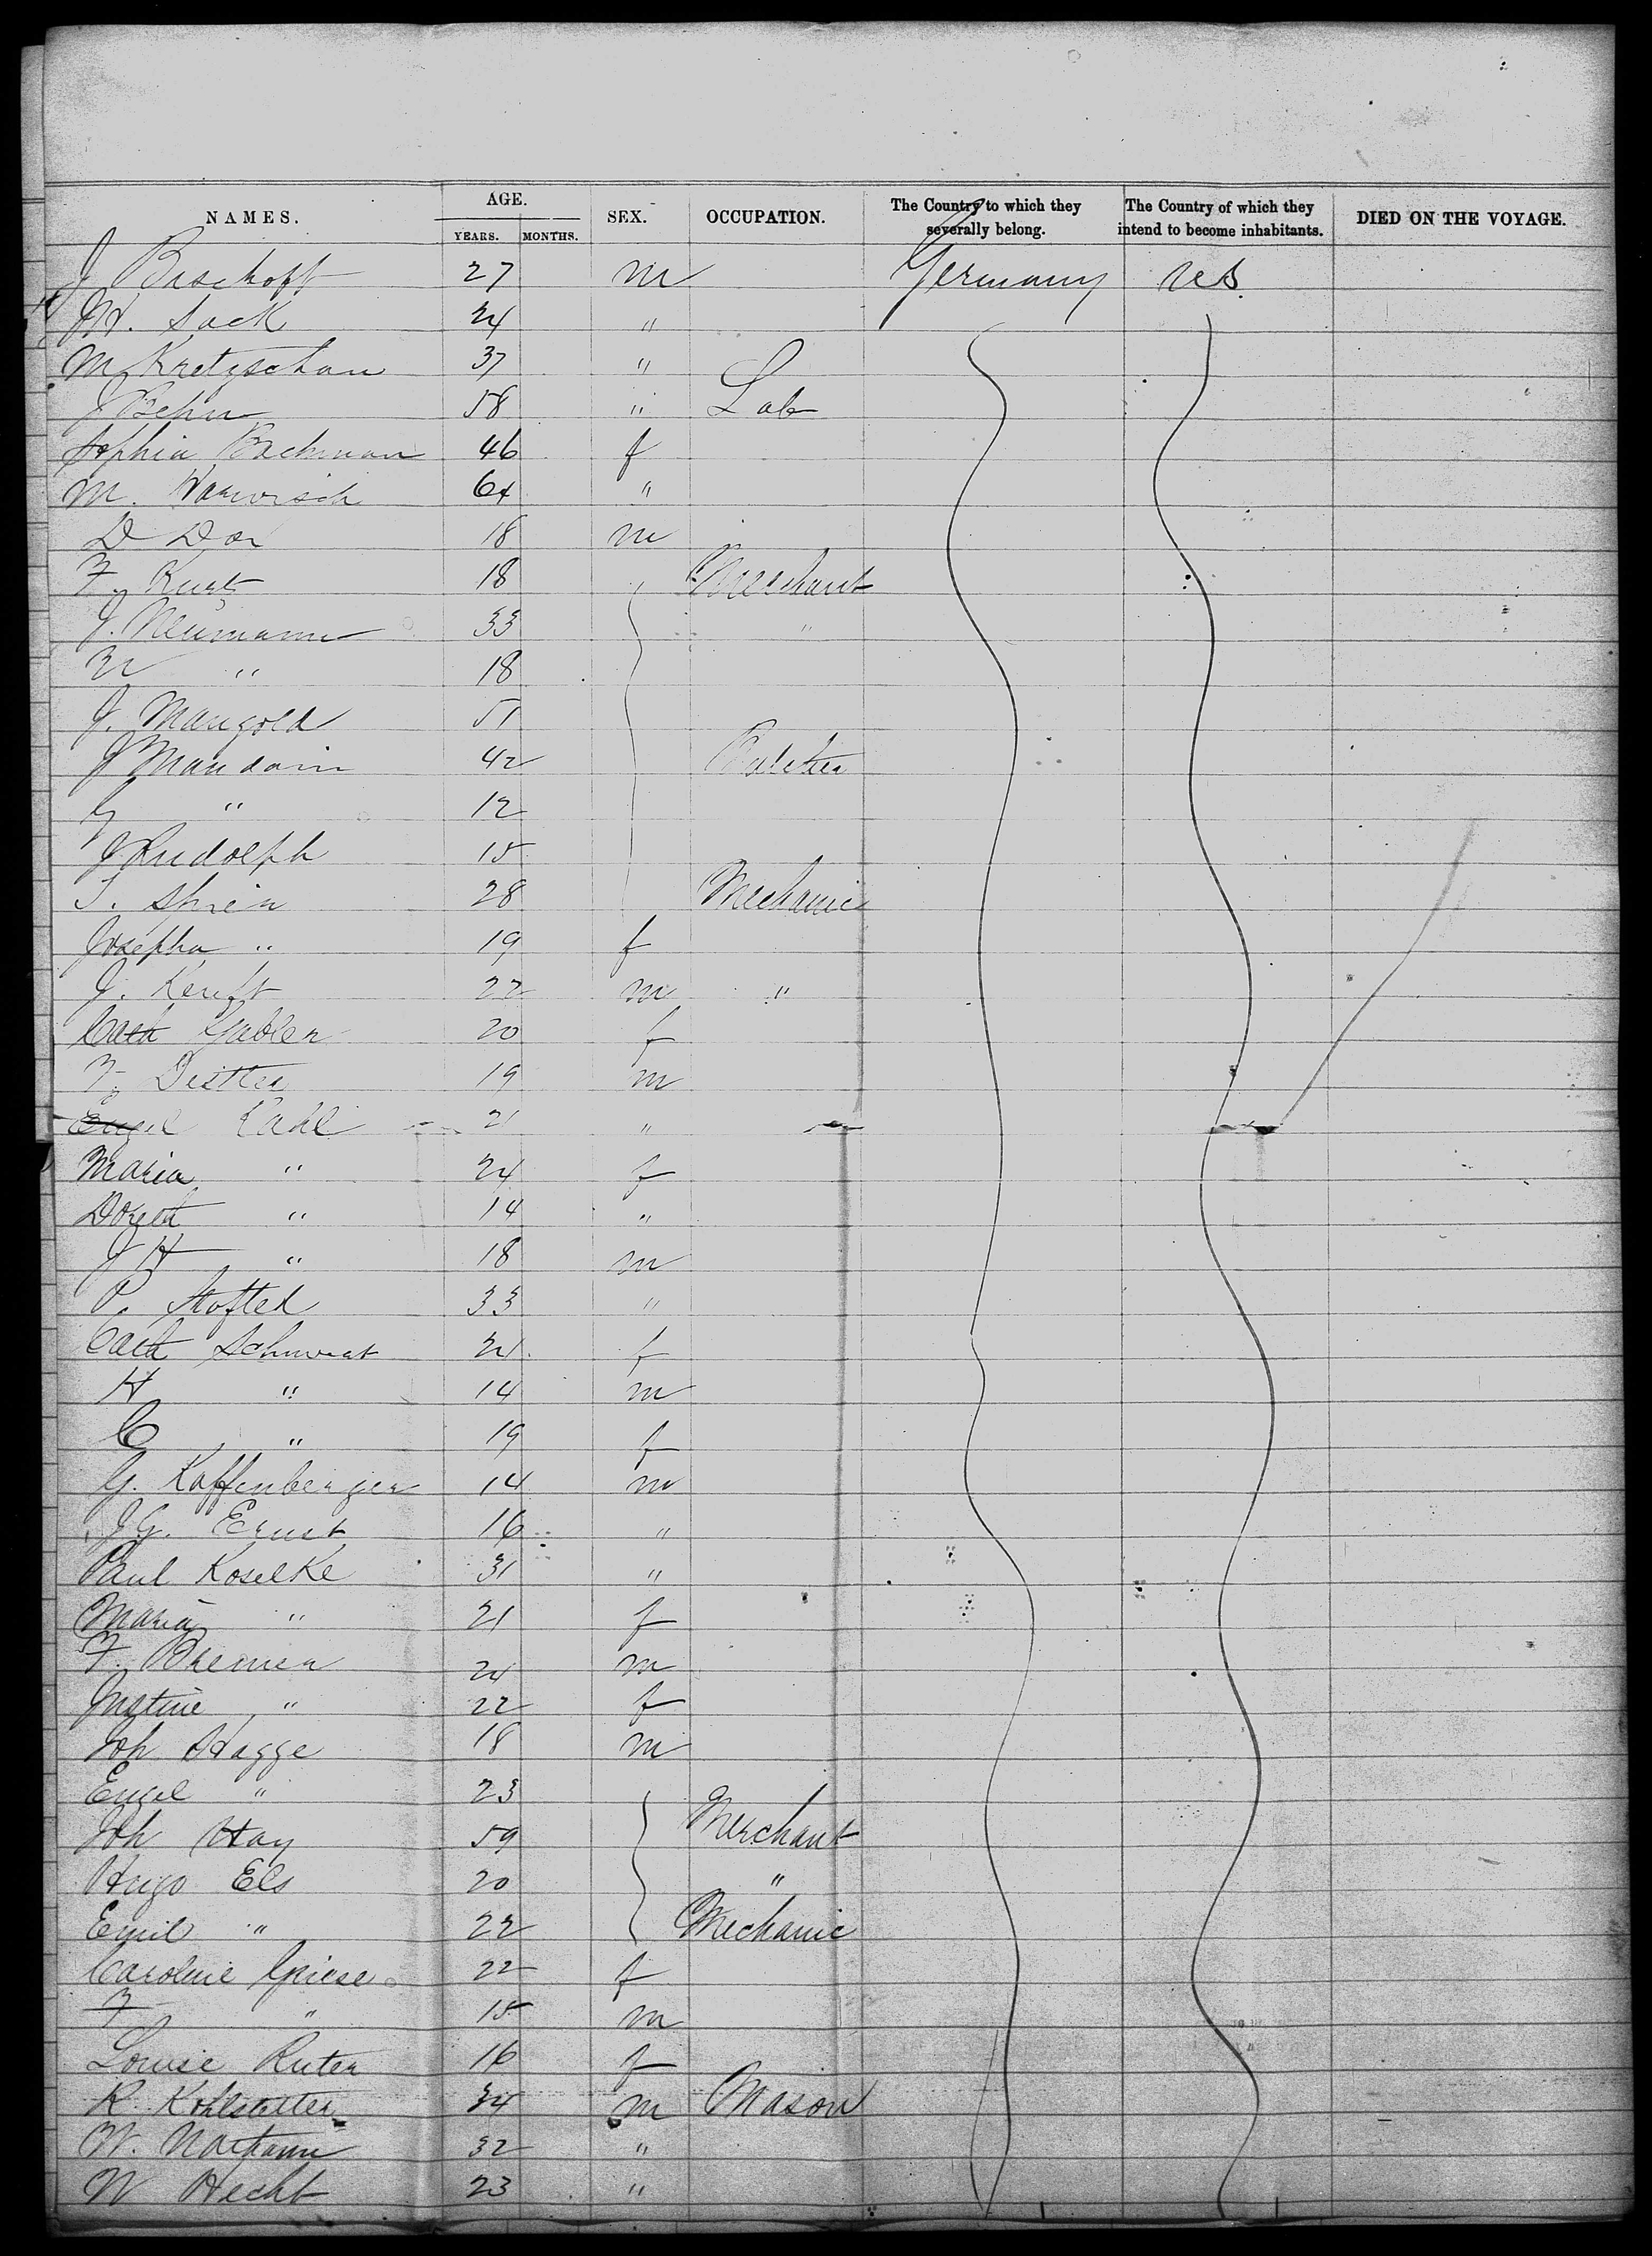 NAMES. AGE. YEARS. MONTHS. SEX. OCCUPATION. The Country to which they severally belong. The Country of which they intend to become inhabitants. DIED ON THE VOYAGE.
J Bischoff 27 m Germany US
H. Sack 24 "
M Kretzschan 37 "
J Behn 58 " Lab
Sophia Backman 46 f
M. 64 "
D Dor 18 m
F. Kurtz 18 Merchant
J. Neumann 33 "
" 18
J. Mangold 51
J Mandain 42 Butcher
G " 12
J Rudolph 15
28 Mechanic
Josepha " 19 f
J. Kenft 22 m "
Cath Gabler 20 f
F. Distler 19 m
Engel Kahl 21 "
Maria " 24 f
Doreth " 14 "
J H " 18 m
P. Stofted 33 "
Cath 21 f
H " 14 m
C " 19 f
G. Kaffenberger 14 m
J G. Ernst 16 "
Paul Koselke 31 "
Maria " 21 f
F. Bremer 24 m
Justine " 22 f
Joh Hagge 18 m
Engel " 23
Joh Hay 59 Merchant
Hugo Els 20 "
Emil " 22 Mechanic
Caroline Griese 22 f
F " 15 m
Louise Ruter 16 f
R. Kohlstetter 34 m Mason
W. 32 "
W Hecht 23 "